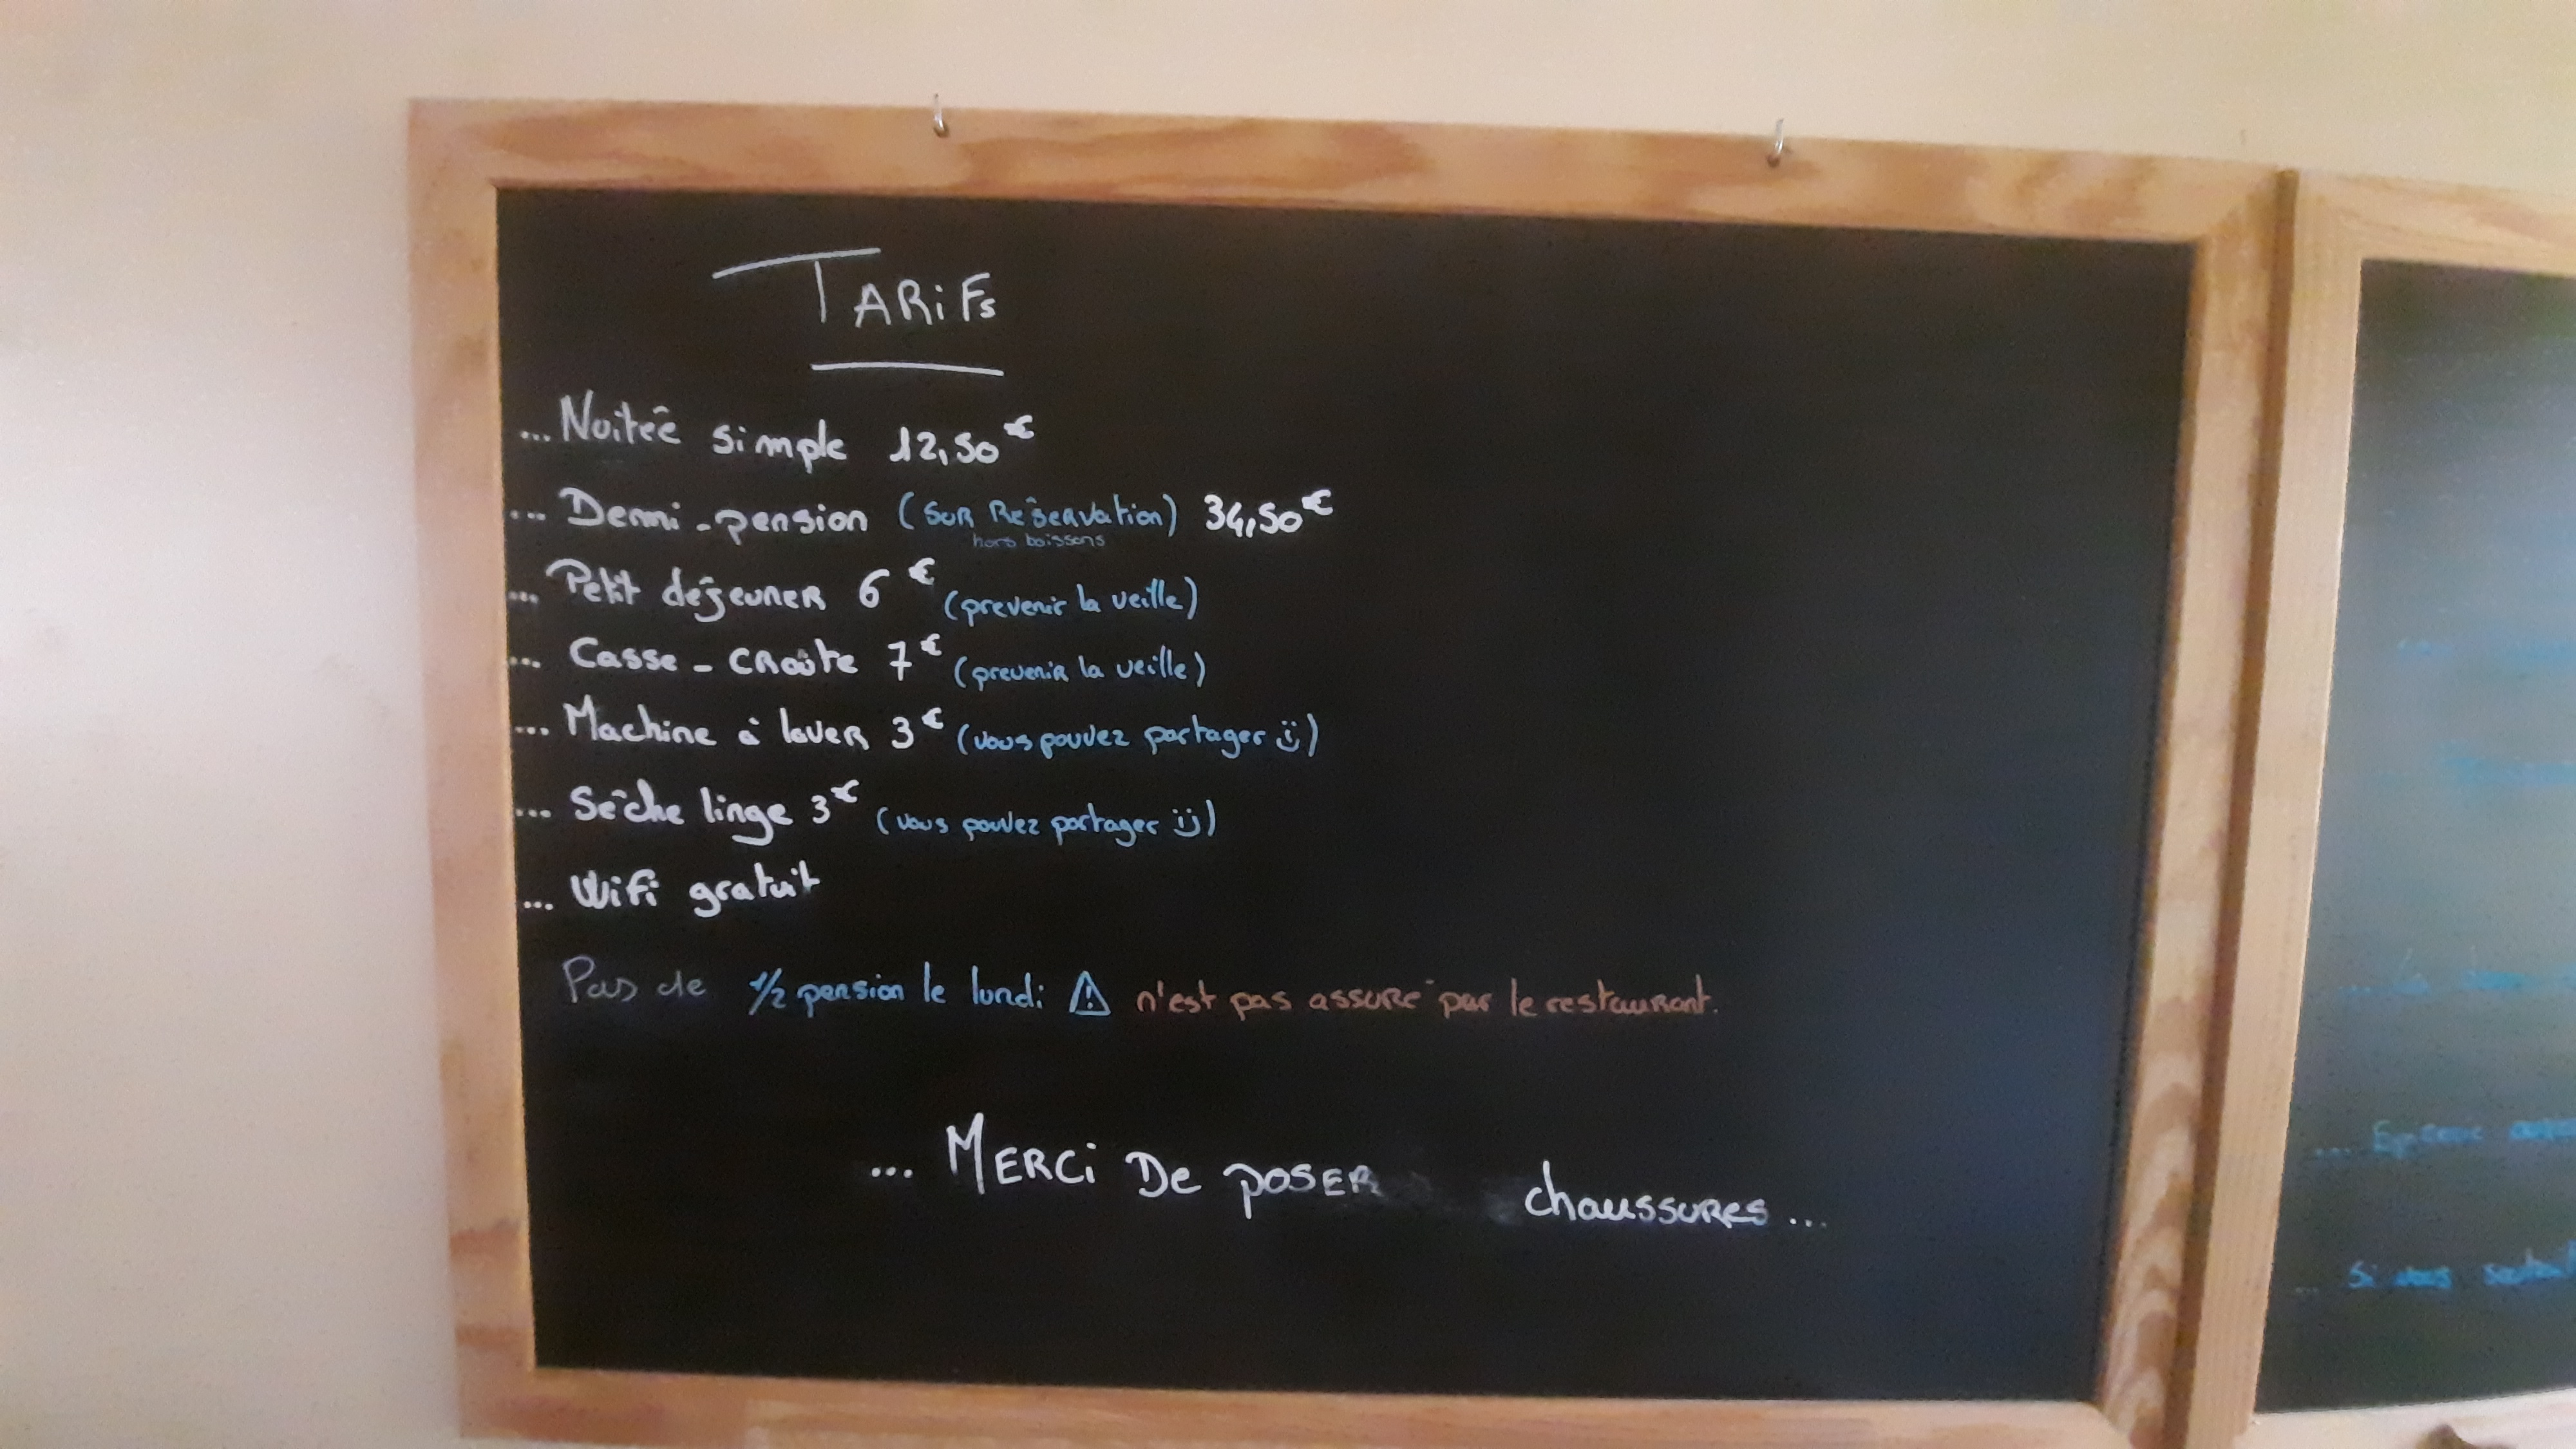 TARiFs
... Nuitée simple 12,50€
... Demi-pension (SuR RéseRvation) 34,50€
hors boissons
... Petit déjeuneR 6€ (prevenir la veille)
... Casse-CRoûte 7€ (preveniR la veille)
... Machine à laveR 3€ (vous pouvez partager :))
... Sèche linge 3€ (vous pouvez partager :))
... Wifi gratuit
Pas de 1/2 pension le lundi ⚠ n'est pas assuré par le restauRant.
... MERCi De poseR chaussuRes ...
.... Epicerie
... Si vous